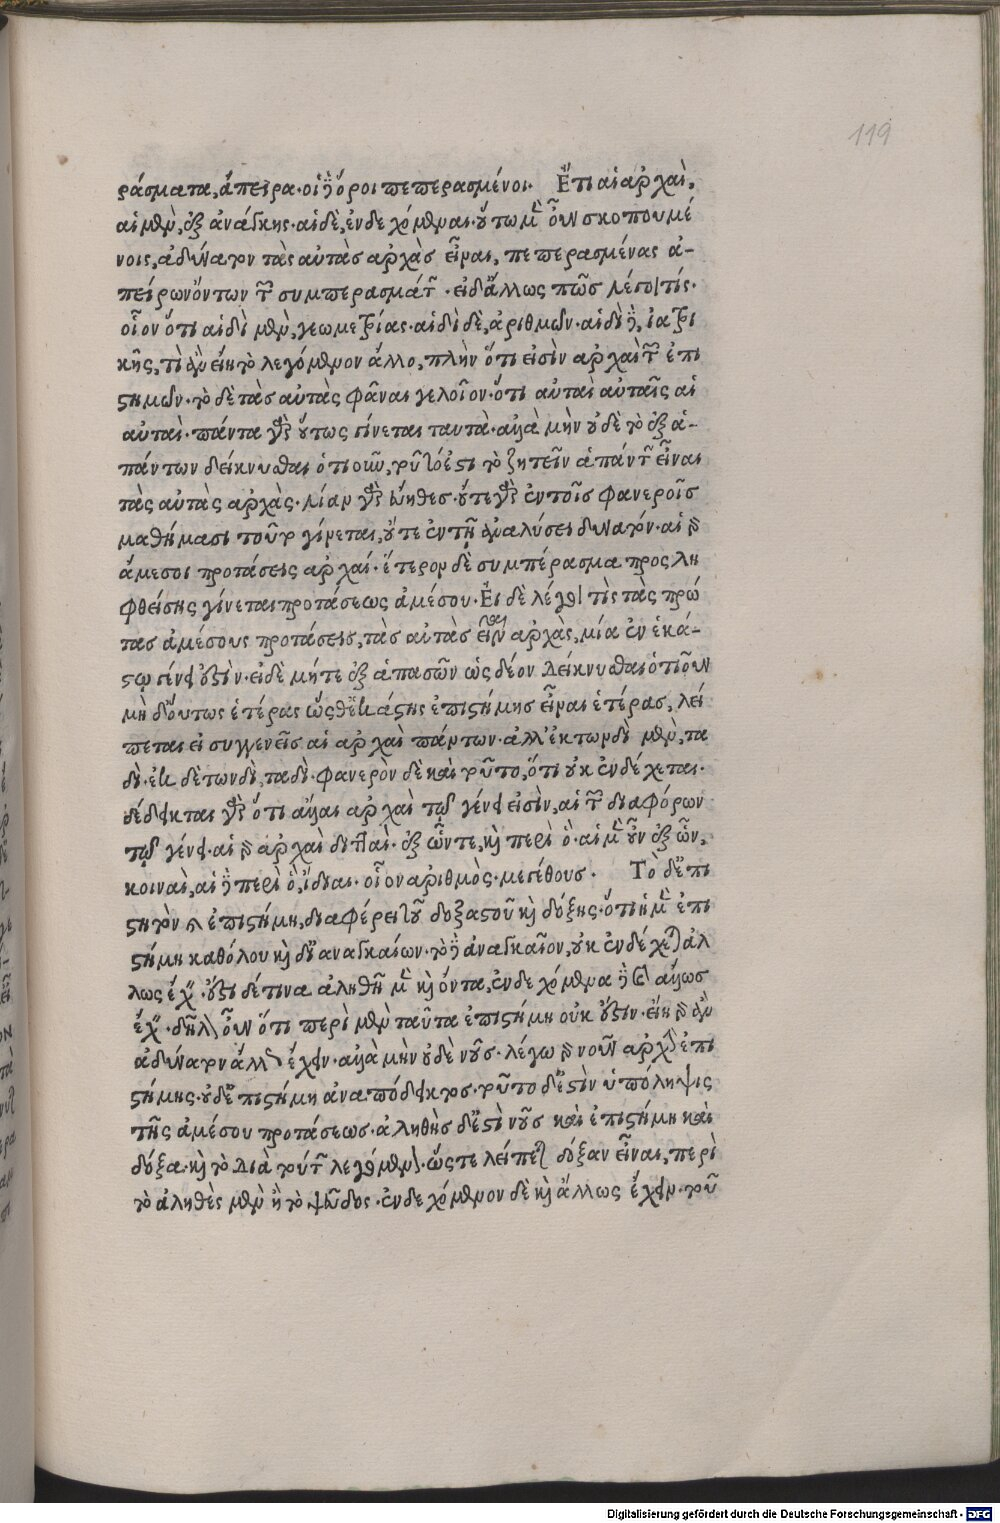 ράσματα, ἄπειρα· οἱ δὲ ὅροι πεπερασμένοι· Ἔτι αἱ ἀρχαὶ,
αἱ μὲν, ἐξ ἀνάγκης· αἱ δὲ, ἐνδεχόμεναι· οὕτω μὲν οὖν σκοπουμέ
νοις, ἀδύνατον τὰς αὐτὰς ἀρχὰς εἶναι, πεπερασμένας ἀ-
πείρων ὄντων τῶν συμπερασμάτων· εἰ δ' ἄλλως πῶς λέγοι τίς·
οἷον ὅτι αἱ δὶ μὲν, γεωμετρίας· αἱ δὶ δὲ, ἀριθμῶν· αἱ δὶ δὲ, ἰατρι
κῆς, τὶ ἂν εἴη τὸ λεγόμενον ἄλλο, πλὴν ὅτι εἰσὶν ἀρχαὶ τῶν ἐπι
στημῶν· τὸ δὲ τὰς αὐτὰς φᾶναι γελοῖον· ὅτι αὐταὶ αὐταῖς αἱ
αὐταὶ· πάντα γὰρ οὕτως γίνεται ταυτὰ· ἀλλὰ μὴν οὐδὲ τὸ ἐξ ἁ-
πάντων δείκνυσθαι ὁτιοῦν, τοῦτό ἐστι τὸ ζητεῖν ἁπάντων εἶναι
τὰς αὐτὰς ἀρχὰς· λίαν γὰρ εὔηθες· οὔτε γὰρ ἐν τοῖς φανεροῖς
μαθήμασι τοῦτο γίνεται, οὔτε ἐν τῇ ἀναλύσει δυνατόν· αἱ γὰρ
ἄμεσοι προτάσεις ἀρχαί· ἕτερον δὲ συμπέρασμα προσλη
φθείσης γίνεται προτάσεως ἀμέσου· Εἰ δὲ λέγοι τὶς τὰς πρώ
τας ἀμέσους προτάσεις, τὰς αὐτὰς εἶναι ἀρχὰς, μία ἐν ἑκά-
στῳ γένει ἐστὶν· εἰ δὲ μήτε ἐξ ἁπασῶν ὡς δέον δείκνυσθαι ὁτιοῦν
μὴ δ' οὕτως ἑτέρας ὥσθ' ἑκάστης ἐπιστήμης εἶναι ἑτέρας, λεί
πεται εἰ συγγενεῖς αἱ ἀρχαὶ πάντων· ἀλλ' ἐκ τωνδὶ μὲν, τα
δὶ· ἐκ δὲ τωνδὶ, ταδὶ· φανερὸν δὲ καὶ τοῦτο, ὅτι οὐκ ἐνδέχεται·
δέδεικται γὰρ ὅτι ἄλλαι ἀρχαὶ τῷ γένει εἰσὶν, αἱ τῶν διαφόρων
τῷ γένει· αἱ γὰρ ἀρχαὶ διτταὶ· ἐξ ὧν τε, καὶ περὶ ὃ· αἱ μὲν οὖν ἐξ ὧν,
κοιναὶ, αἱ δὲ περὶ ὃ, ἴδιαι· οἷον ἀριθμὸς· μεγέθους· Τὸ δ' ἐπι
στητὸν καὶ ἐπιστήμη, διαφέρει τοῦ δοξαστοῦ καὶ δόξης· ὅτι ἡ μὲν ἐπι
στήμη καθόλου καὶ δι' ἀναγκαίων· τὸ δὲ ἀναγκαῖον, οὐκ ἐνδέχεται ἀλ
λως ἔχειν· ἔστι δέ τινα ἀληθῆ μὲν καὶ ὄντα, ἐνδεχόμενα δὲ καὶ ἄλλως
ἔχειν· δῆλον οὖν ὅτι περὶ μὲν ταῦτα ἐπιστήμη οὐκ ἔστιν· εἴη γὰρ ἂν
ἀδύνατον ἄλλως ἔχειν· ἀλλὰ μὴν οὐδὲ νοῦς· λέγω γὰρ νοῦν ἀρχὴν ἐπι
στήμης· οὐδ' ἐπιστήμη ἀναπόδεικτος· τοῦτο δ' ἐστὶν ὑπόληψις
τῆς ἀμέσου προτάσεως· ἀληθὴς δ' ἐστὶ νοῦς καὶ ἐπιστήμη καὶ
δόξα· καὶ τὸ διὰ τούτων λεγόμενον· ὥστε λείπεται δόξαν εἶναι, περὶ
τὸ ἀληθὲς μὲν ἢ τὸ ψεῦδος· ἐνδεχόμενον δὲ καὶ ἄλλως ἔχειν· τοῦ
119
Digitalisierung gefördert durch die Deutsche Forschungsgemeinschaft - DFG